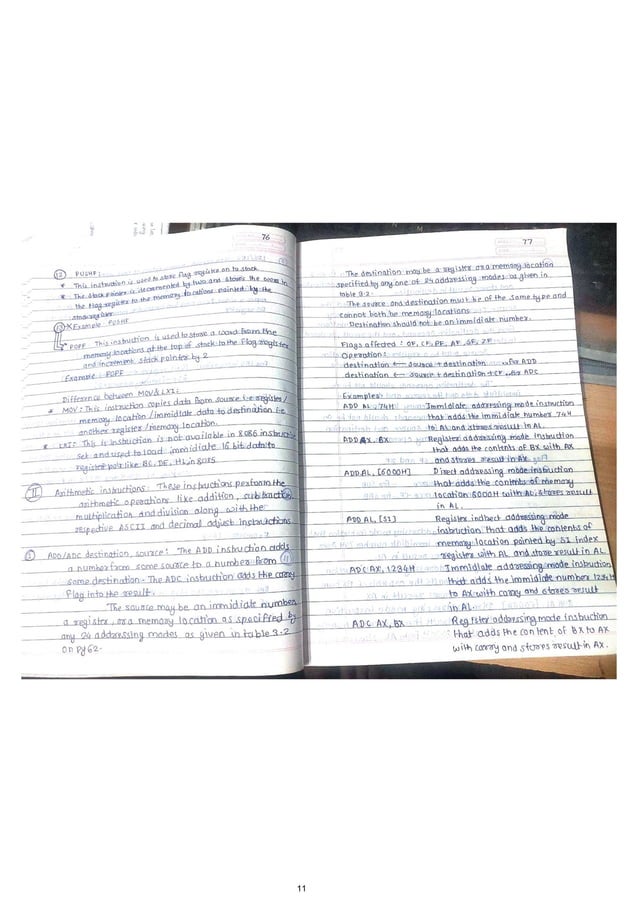 76
(12) PUSHF :
* This instruction is used to store flag register on to stack
* The stack pointer is decremented by two and stores the word in
the flag register to the memory locations pointed by the
stack register
Example : PUSHF
(13)
* POPF This instruction is used to store a word from the
memory locations at the top of stack to the flag register
and increment stack pointer by 2
Example : POPF
Difference between MOV & LXI:
* MOV : This instruction copies data from source i.e register/
memory location / immidiate data to destination i.e
another register / memory location.
* LXI : This is instruction is not available in 8086
set and used to load immidiate 16 bit data to
register pair like BC, DE, HL, in 8085
(II) Arithmetic instructions : These instructions perform the
arithmetic operations like addition, subtraction,
multiplication and division along with the
respective ASCII and decimal adjust instructions
(1) ADD/ADC destination, source : The ADD instruction adds
a number from some source to a number from
some destination. The ADC instruction adds the carry
flag into the result.
The source may be an immidiate number
a register, or a memory location as specified by
any 24 addressing modes as given in table 3.2
on pg 62.
77
The destination may be a register or a memory location
specified by any one of 24 addressing modes as given in
table 3.2.
The source and destination must be of the same type and
cannot both be memory locations
Destination should not be an immidiate number.
Flags affected : OF, CF, PF, AF, SF, ZF
Operation :
destination ← source + destination for ADD
destination ← source + destination + CF for ADC
Examples:
ADD AL, 74H Immidiate addressing mode instruction
that adds the immidiate number 74H
to AL and stores result in AL.
ADD AX, BX Register addressing mode instruction
that adds the contents of BX with AX
and stores result in AX
ADD AL, [6000H] Direct addressing mode instruction
that adds the contents of memory
location 6000H with AL, stores result
in AL.
ADD AL, [SI] Register indirect addressing mode
instruction that adds the contents of
memory location pointed by SI index
register with AL and store result in AL.
ADC AX, 1234H Immidiate addressing mode instruction
that adds the immidiate number 1234H
to AX with carry and stores result
in AL.
ADC AX, BX Register addressing mode instruction
that adds the content of BX to AX
with carry and stores result in AX.
11